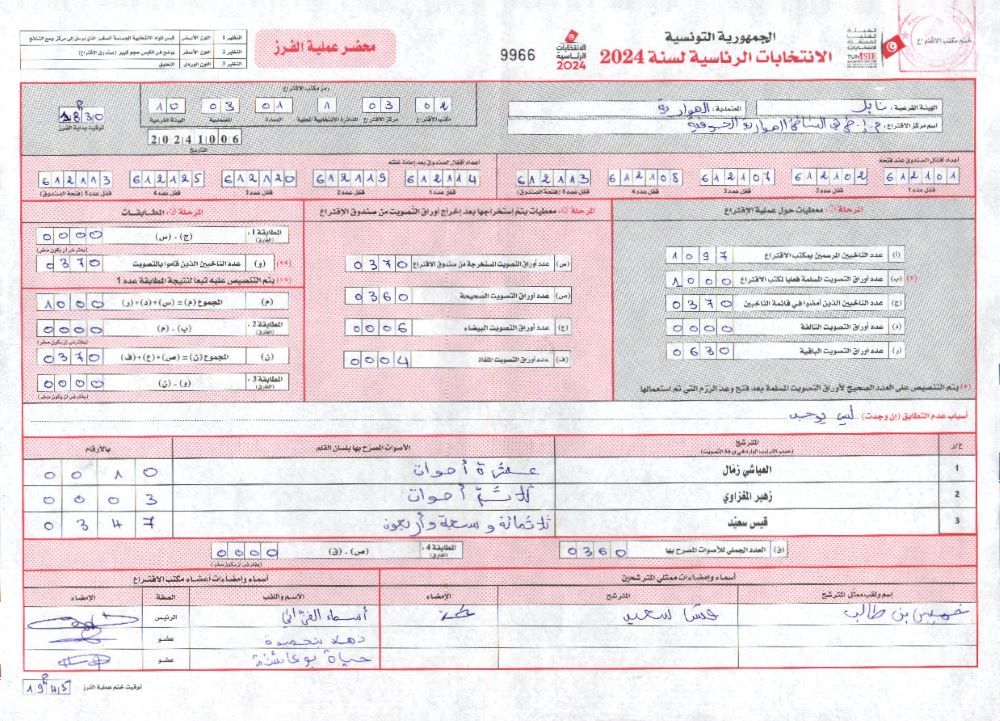 ختم مكتب الاقتراع
الهيئة العليا المستقلة للانتخابات
TUNISIE
الجمهورية التونسية
الانتخابات الرئاسية لسنة 2024
الانتخابات الرئاسية 2024
9966
محضر عملية الفرز
النظير 1 اللون الأصفر
النظير 2 اللون الأصفر يوضع في الكيس حجم كبير (صندوق الاقتراع)
النظير 3 اللون الوردي التعليق
الهيئة الفرعية: نابل
المعتمدية: الهوارية
اسم مركز الاقتراع:
رمز مكتب الاقتراع
02 03 1 01 03 10
مكتب الاقتراع مركز الاقتراع الدائرة الانتخابية المحلية العمادة المعتمدية الهيئة الفرعية
20241006
التاريخ
1830
توقيت بداية الفرز
أعداد أقفال الصندوق عند فتحه
612101 612102 612107 612108 612113
قفل عدد 1 قفل عدد 2 قفل عدد 3 قفل عدد 4 قفل عدد 5 (فتحة الصندوق)
أعداد أقفال الصندوق بعد إعادة غلقه
612114 612119 612120 612125 612113
قفل عدد 1 قفل عدد 2 قفل عدد 3 قفل عدد 4 قفل عدد 5 (فتحة الصندوق)
المرحلة 1: معطيات حول عملية الاقتراع
(أ) عدد الناخبين المرسمين بمكتب الاقتراع 1097
(*) (ب) عدد أوراق التصويت المسلمة فعليا لمكتب الاقتراع 1000
(ج) عدد الناخبين الذين أمضوا في قائمة الناخبين 0370
(د) عدد أوراق التصويت التالفة 0000
(ر) عدد أوراق التصويت الباقية 0630
(*) يتم التنصيص على العدد الصحيح لأوراق التصويت المسلمة بعد فتح وعد الرزم التي تم استعمالها
المرحلة 2: معطيات يتم إستخراجها بعد إخراج أوراق التصويت من صندوق الاقتراع
(س) عدد أوراق التصويت المستخرجة من صندوق الاقتراع 0370
(ص) عدد أوراق التصويت الصحيحة 0360
(ع) عدد أوراق التصويت البيضاء 0006
(ف) عدد أوراق التصويت الملغاة 0004
المرحلة 3: المطابقات
المطابقة 1: (الفارق) (ج) - (س) 0000
(يفترض أن يكون صفر)
(**) (و) عدد الناخبين الذين قاموا بالتصويت 0370
(**) يتم التنصيص عليه تبعا لنتيجة المطابقة عدد 1
(م) المجموع (م) = (س) + (د) + (ر) 1000
المطابقة 2: (الفارق) (ب) - (م) 0000
(يفترض أن يكون صفر)
(ن) المجموع (ن) = (ص) + (ع) + (ف) 0370
المطابقة 3: (الفارق) (و) - (ن) 0000
(يفترض أن يكون صفر)
أسباب عدم التطابق (إن وجدت)
ع/ر المترشح الأصوات المصرح بها بلسان القلم بالأرقام
(حسب الترتيب الوارد في ورقة التصويت)
1 العياشي زمال عشرة أصوات 0010
2 زهير المغزاوي ثلاثة أصوات 0003
3 قيس سعيّد ثلاثمائة وسبعة وأربعون 0347
(ق) العدد الجملي للأصوات المصرح بها 0360
المطابقة 4: (الفارق) (ص) - (ق) 0000
(يفترض أن يكون صفر)
أسماء وإمضاءات ممثلي المترشحين أسماء وإمضاءات أعضاء مكتب الاقتراع
إسم ولقب ممثل المترشح المترشح الإمضاء الاسم واللقب الصفة الإمضاء
خميس بن طالب سعيد أسماء الرئيس
عضو
حياة بوعائشة عضو
1945 توقيت ختم عملية الفرز